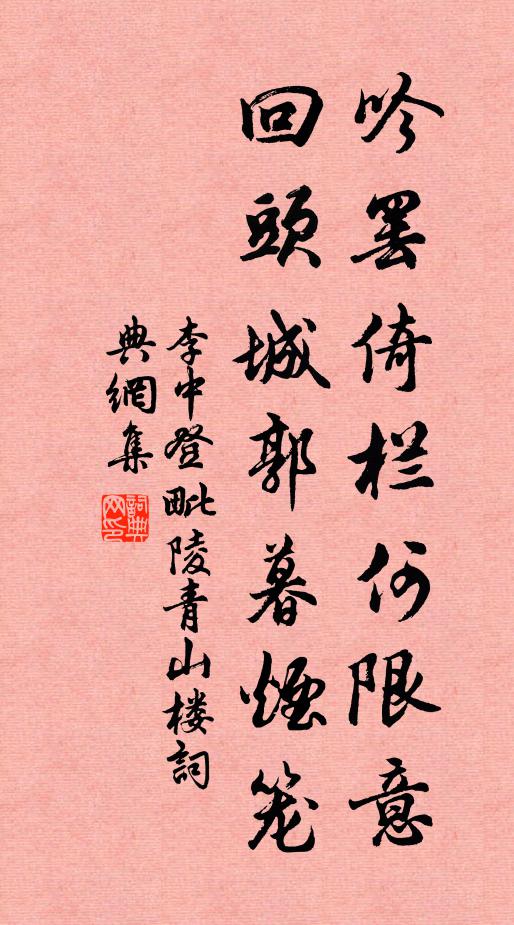 吟罢倚栏何限意
回頭城郭暮煙笼
李中登毗陵青山楼詞
典網集
詞典网印